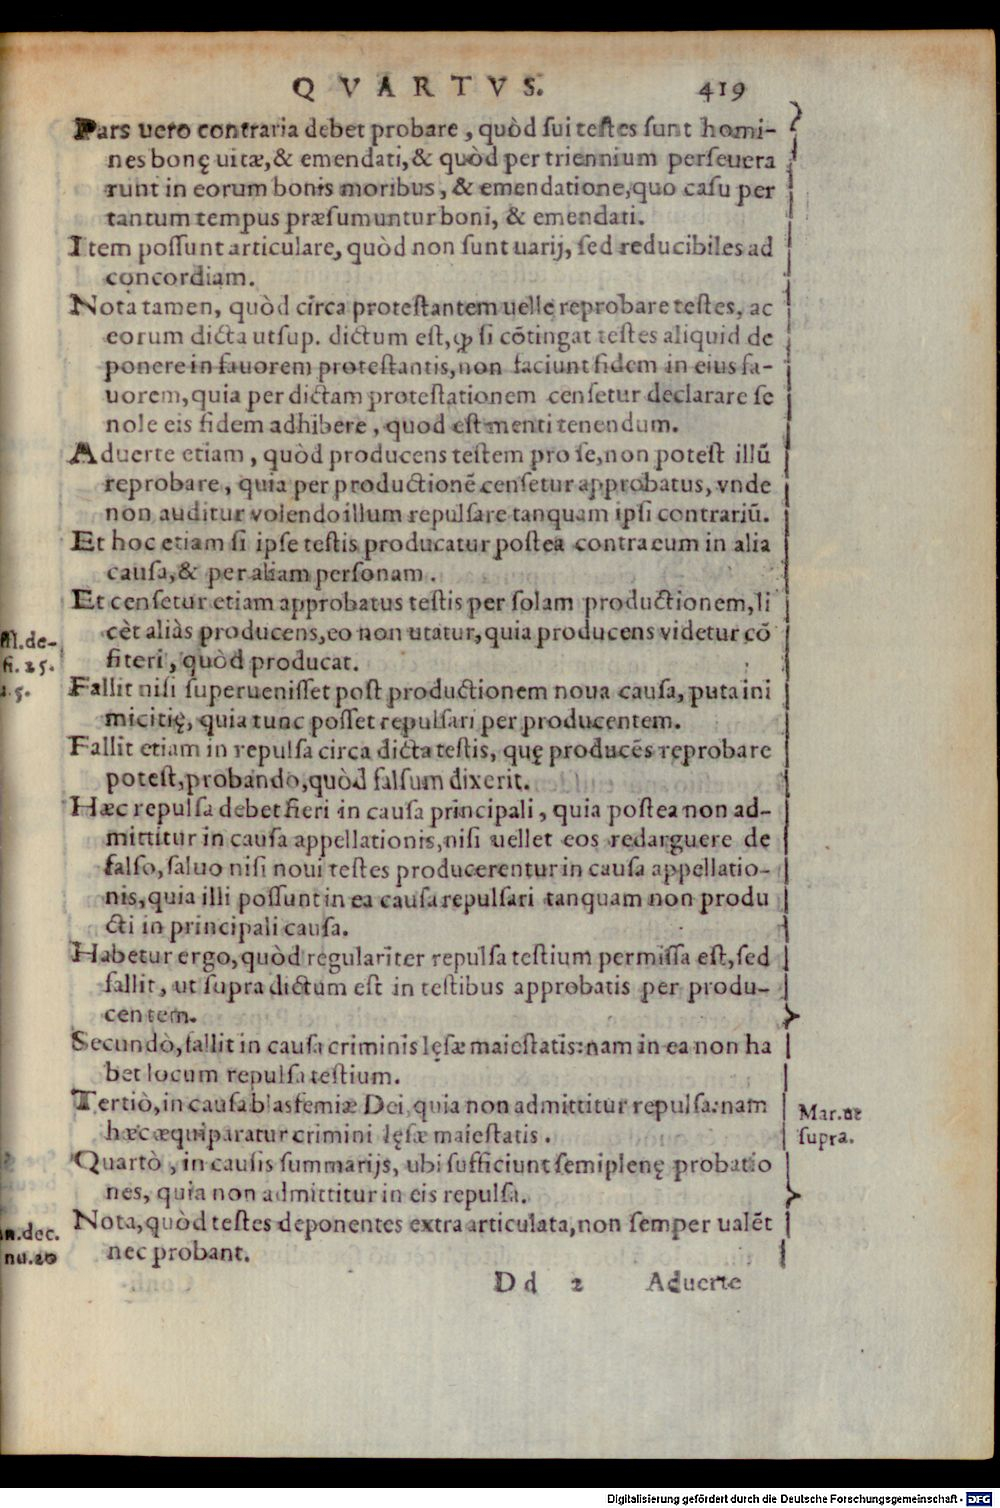 QVARTVS. 419
Pars uero contraria debet probare, quòd sui testes sunt homi-
nes bonę uitæ, & emendati, & quòd per triennium perseuera
runt in eorum bonis moribus, & emendatione, quo casu per
tantum tempus præsumuntur boni, & emendati.
Item possunt articulare, quòd non sunt uarij, sed reducibiles ad
concordiam.
Nota tamen, quòd circa protestantem uelle reprobare testes, ac
eorum dicta ut sup. dictum est, ꝙ si cõtingat testes aliquid de
ponere in fauorem protestantis, non faciunt fidem in eius fa-
uorem, quia per dictam protestationem censetur declarare se
nole eis fidem adhibere, quod est menti tenendum.
Aduerte etiam, quòd producens testem pro se, non potest illũ
reprobare, quia per productionẽ censetur approbatus, vnde
non auditur volendo illum repulsare tanquam ipsi contrariũ.
Et hoc etiam si ipse testis producatur postea contra eum in alia
causa, & per aliam personam.
Et censetur etiam approbatus testis per solam productionem, li
cèt aliàs producens, eo non utatur, quia producens videtur cõ
fiteri, quòd producat.
Fallit nisi superuenisset post productionem noua causa, puta ini
micitię, quia tunc posset repulsari per producentem.
Fallit etiam in repulsa circa dicta testis, quę producẽs reprobare
potest, probando, quòd falsum dixerit.
Hæc repulsa debet fieri in causa principali, quia postea non ad-
mittitur in causa appellationis, nisi uellet eos redarguere de
falso, saluo nisi noui testes producerentur in causa appellatio-
nis, quia illi possunt in ea causa repulsari tanquam non produ
cti in principali causa.
Habetur ergo, quòd regulariter repulsa testium permissa est, sed
fallit, ut supra dictum est in testibus approbatis per produ-
centem.
Secundò, fallit in causa criminis lęsæ maiestatis: nam in ea non ha
bet locum repulsa testium.
Tertiò, in causa blasfemiæ Dei, quia non admittitur repulsa: nam
hæc æquiparatur crimini lęsæ maiestatis.
Quartò, in causis summarijs, ubi sufficiunt semiplenę probatio
nes, quia non admittitur in eis repulsa.
Nota, quòd testes deponentes extra articulata, non semper ualẽt
nec probant.
Dd 2 Aduerte
de-
fi. 25.
5.
dec.
nu. 20
Mar. ut
supra.
Digitalisierung gefördert durch die Deutsche Forschungsgemeinschaft - DFG